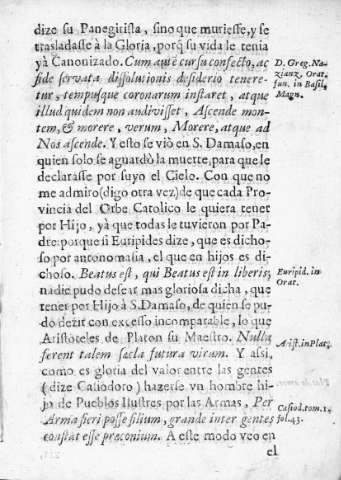 dize su Panegirista, sino que muriesse, y se
trasladasse à la Gloria, porq̃ su vida le tenia
yà Canonizado. Cum autẽ cursu confecto, ac
fide servata dissolutionis desiderio tenere-
tur, tempusque coronarum instaret, atque
illud quidem non audivisset, Ascende mon-
tem, & morere, verum, Morere, atque ad
Nos ascende. Y esto se viò en S. Damaso, en
quien solo se aguardò la muette, para que le
declarasse por suyo el Cielo. Con que no
me admiro (digo otra vez) de que cada Pro-
vincia del Orbe Catolico le quiera tenet
por Hijo, yà que todas le tuvieron por Pa-
dre: porque si Euripides dize, que es dicho-
so por antonomasia, el que en hijos es di-
choso. Beatus est, qui Beatus est in liberis;
nadie pudo desear mas gloriosa dicha, que
tener por Hijo à S. Damaso, de quien se pu-
do dezir con excesso incomparable, lo que
Aristoteles de Platon su Maestro. Nulla
ferent talem sæcla futura virum. Y assi,
como es gloria del valor entre las gentes
(dize Casiodoro) hazerse vn hombre hi-
jo de Pueblos Ilustres por las Armas, Per
Arma fieri posse filium, grande inter gentes
constat esse præconium. A este modo veo en
el
D. Greg. Na-
zianz. Orat.
fun. in Basil.
Magn.
Euripid. in
Orat.
Arist. in Plat.
Casiod. tom. 1.
fol. 43.